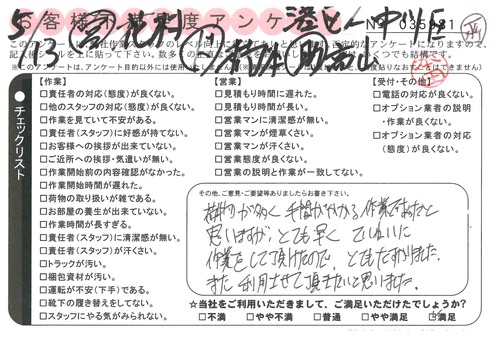 お客様満足度アンケ
No 035981
5/13
【作業】
□責任者の対応(態度)が良くない。
□他のスタッフの対応(態度)が良くない。
□作業を見ていて不安がある。
□責任者(スタッフ)に好感が持てない。
□お客様への挨拶が出来ていない。
□ご近所への挨拶・気遣いが無い。
□作業開始前の内容確認がなかった。
□作業開始時間が遅れた。
□荷物の取り扱いが雑である。
□お部屋の養生が出来ていない。
□作業時間が長すぎる。
□責任者(スタッフ)に清潔感が無い。
□責任者(スタッフ)が汗くさい。
□トラックが汚い。
□梱包資材が汚い。
□運転が不安(下手)である。
□靴下の履き替えをしてない。
□スタッフにやる気がみられない。
【営業】
□見積もり時間に遅れた。
□見積もり時間が長い。
□営業マンに清潔感が無い。
□営業マンが煙草くさい。
□営業マンが汗くさい。
□営業態度が良くない。
□営業の説明と作業が一致してない。
【受付・その他】
□電話の対応が良くない。
□オプション業者の説明
・作業が良くない。
□オプション業者の対応
(態度)が良くない。
チェックリスト
その他、ご意見・ご要望等ありましたらお書き下さい。
植物が多く 手間がかかる作業であったと
思いますが、とても早く ていねいに
作業をして頂けたので、とてもたすかりました。
また利用させて頂きたいと思いました。
☆当社をご利用いただきまして、ご満足いただけたでしょうか?
□不満 □やや不満 □普通 □やや満足 □満足